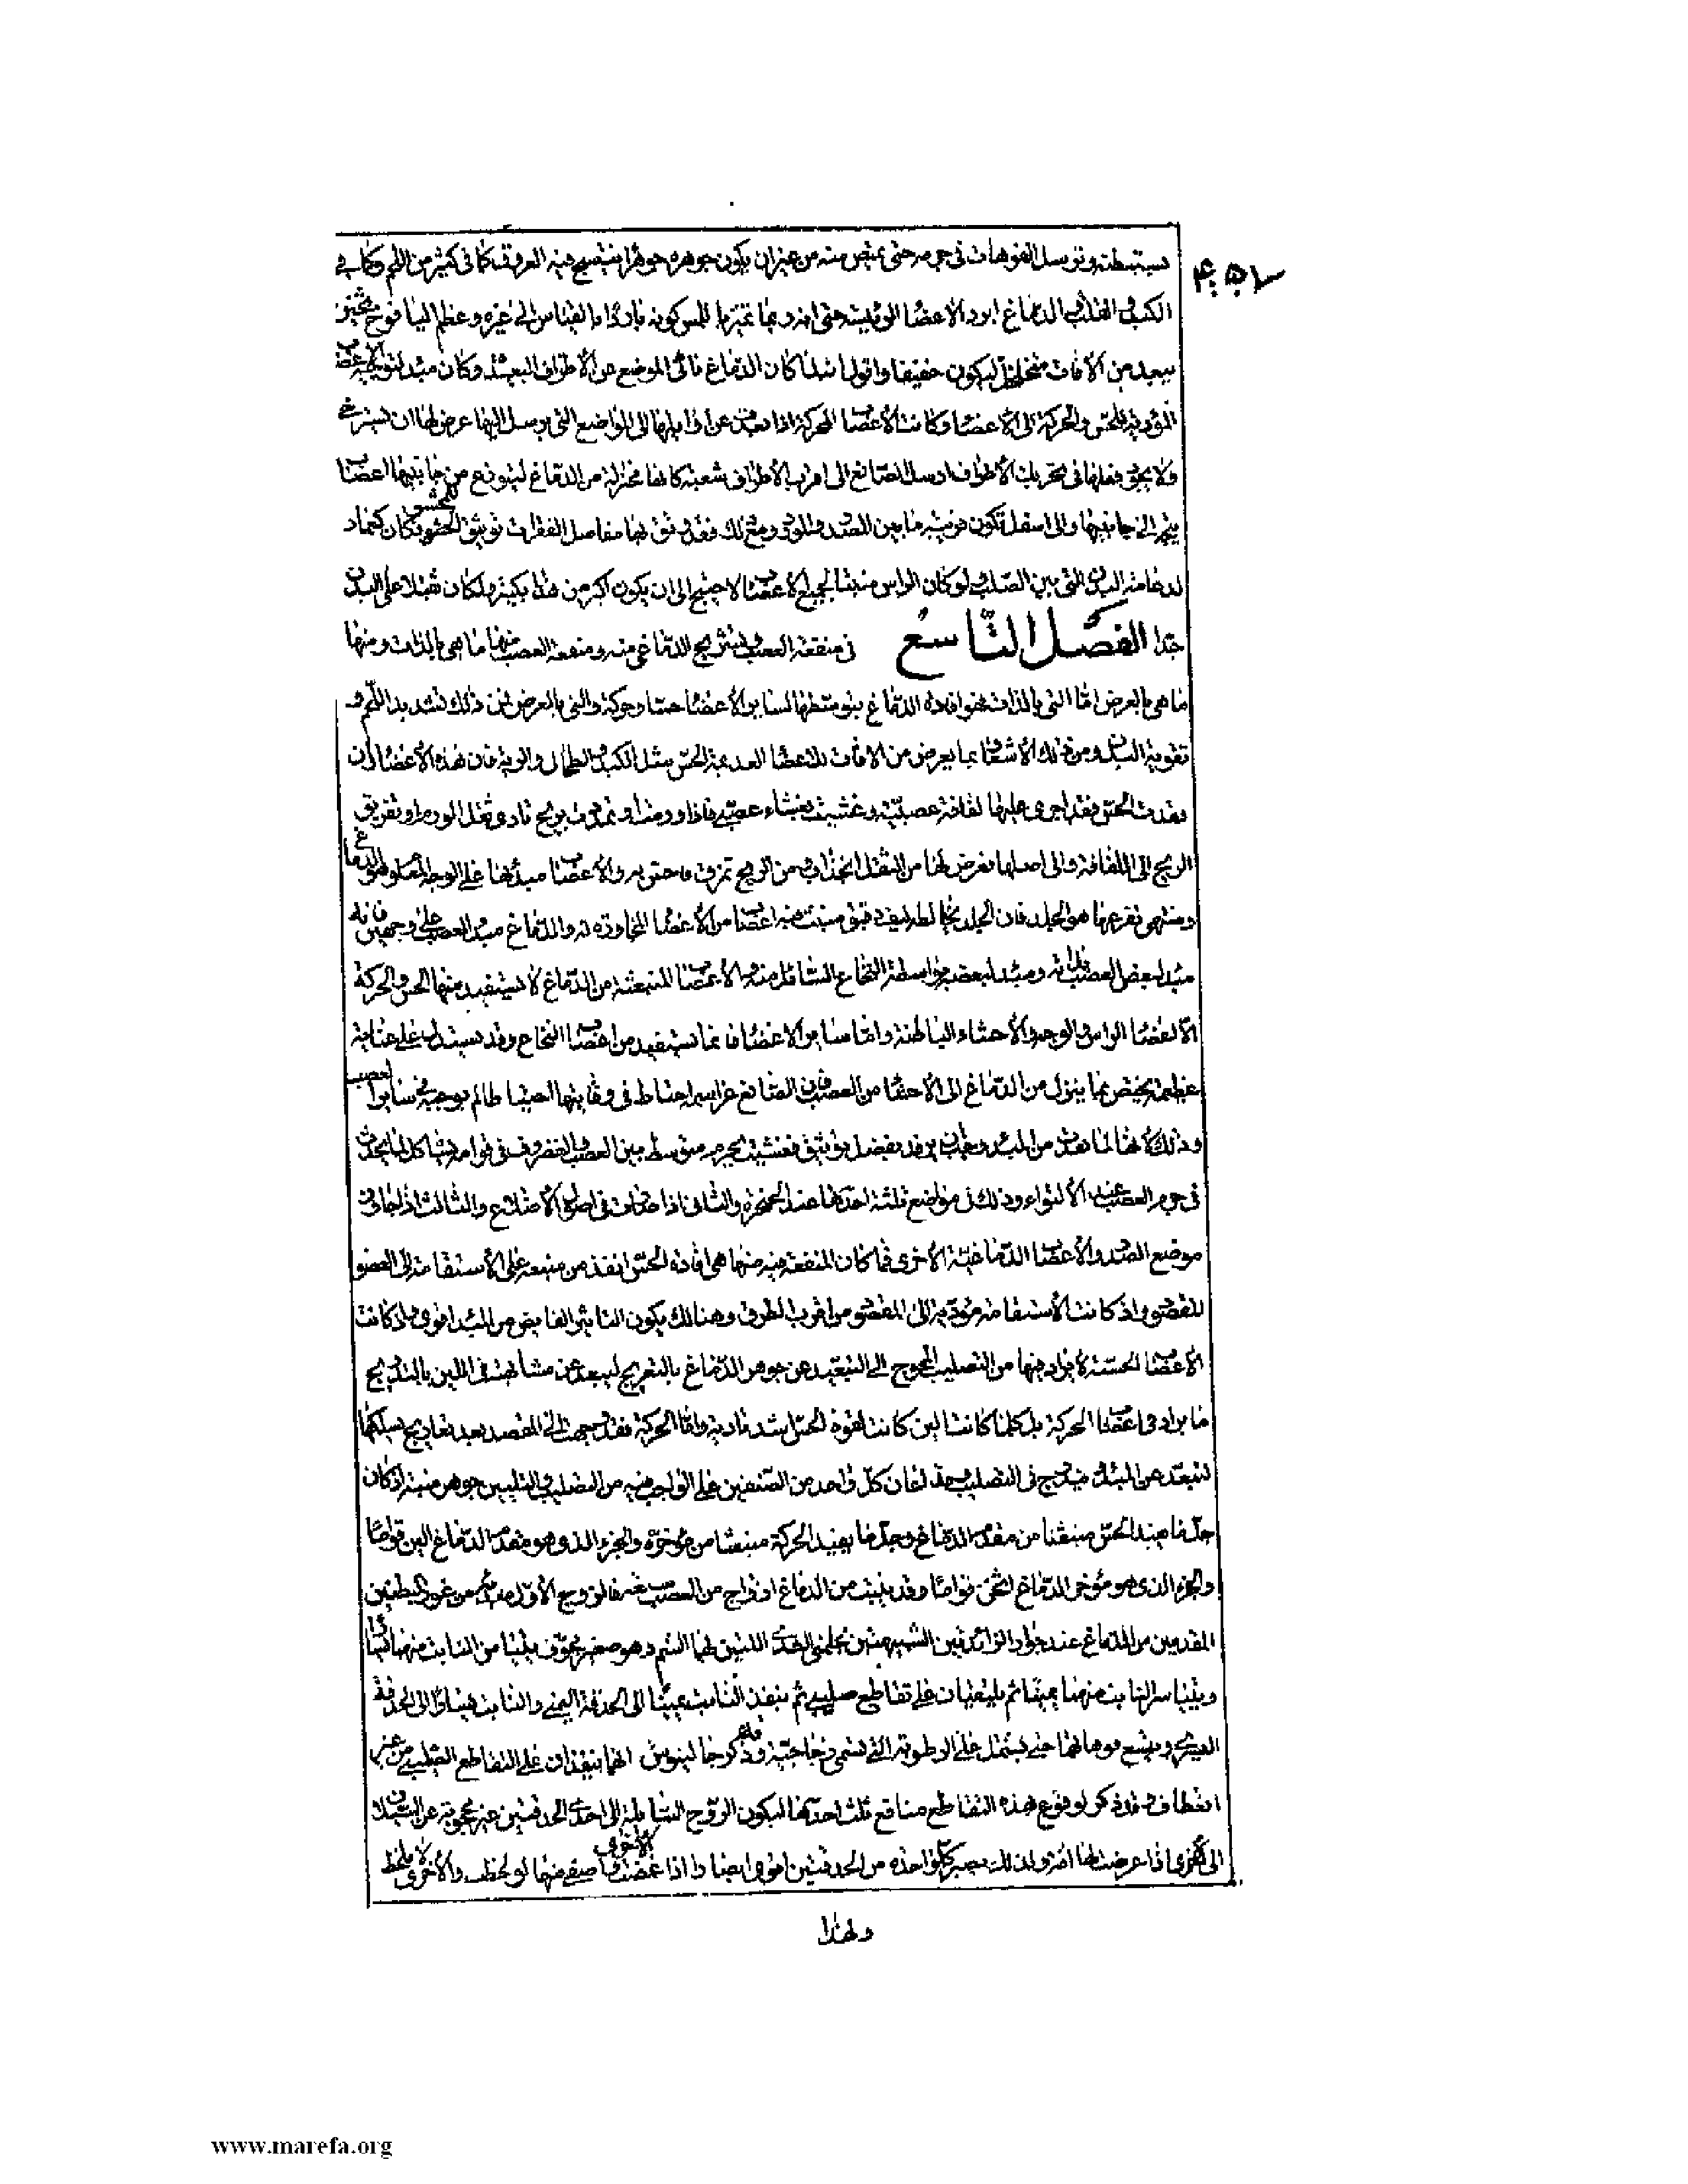 تستبطنه وترسل الفوهات في جرمه حتى يمتص منه من غير ان يكون جوهره جوهرا ينتسج فيه العروق كما في كثير من اللحم وكما في
الكبد والقلب والدماغ ابرد الاعضاء الرئيسة حتى انه ربما تميز باللمس كونه باردا بالقياس الى غيره وعظم اليافوخ
من الآفات متخلخل ليكون خفيفا واقول انه لما كان الدماغ نائي الموضع عن الأطراف البعيدة وكان مبدأ
المؤدية للحس والحركة الى الأعضاء وكانت الأعصاب المحركة اذا بعدت عن اوايلها الى المواضع التي يرسل اليها عرض لها ان تسترخي
ولا يجود فعلها في تحريك الأطراف ارسل الصانع الى اقرب الأطراف شعبة كانها مختزلة من الدماغ ليتوزع من جانبيها اعصاب
الى جانبيها والى اسفل تكون قريبة ما بين الصدر والورود ومع ذلك فقد وثق بها مفاصل الفقرات توثيق فكان كعماد
لدعامة البدن التي هي الصلب ولو كان الراس منبتا لجميع الأعصاب لاحتيج الى ان يكون اكبر من هذا بكثير ولكان ثقيلا على البدن
جدا الفصل التاسع في منفعة العصب وتشريح الدماغي منه ومنفعة العصب منها ما هي بالذات ومنها
ما هي بالعرض اما التي بالذات فهو افادة الدماغ بتوسطها لساير الأعضاء حسا وحركة والتي بالعرض فمن ذلك تشديد اللحم و
تقوية البدن ومن ذلك الأشعار بما يعرض من الآفات للاعضاء العديمة الحس مثل الكبد والطحال والرية فان هذه الأعضاء وان
فقدت الحس فقد اجرى عليها لفافة عصبية وغشيت بغشاء عصبي فاذا ورمت او تمددت بريح تادى ثقل الورم او تفريق
الريح الى اللفافة والى اصلها فعرض لها من الثقل انجذاب ومن الريح تمزق فاحس به والأعصاب مبدؤها على الوجه المعلوم هو الدماغ
ومنتهى تفرعها هو الجلد فان الجلد يخالطه ليف دقيق منبث فيه اعصاب من الأعضاء المجاورة له والدماغ مبدأ العصب على وجهين فانه
مبدأ لبعض العصب بذاته ومبدأ لبعضه بوساطة النخاع السائل منه والأعصاب المنبعثة من الدماغ لا يستفيد منها الحس والحركة
الا اعضاء الراس والوجه والأحشاء الباطنة واما ساير الأعضاء فانما تستفيد من اعصاب النخاع وقد يستدل على عناية
عظيمة يختص بما ينزل من الدماغ الى الأحشاء من العصب فان الصانع عز اسمه احتاط في وقايتها احتياطا لم يوجبه في ساير العصب
وذلك لأنها لما بعدت من المبدأ وجب ان ترفد بفضل توثيق فغشيت بجرم متوسط بين العصب والغضروف في قوامه مشاكل لما يحدث
في جرم العصب عند الالتواء وذلك في مواضع ثلثة احدها عند الحنجرة والثاني اذا صارت في اصول الأضلاع والثالث اذا جاوزت
موضع الصدر والأعصاب الدماغية الأخرى فما كان المنفعة فيه منها هي افادة الحس انفذ من منبعه على الاستقامة الى العضو
المقصود اذ كانت الاستقامة مؤدية الى المقصود من اقرب الطرق وهنالك يكون التاثير الفايض من المبدأ اقوى واذ كانت
الأعصاب الحسية لا يراد فيها من التصليب المحوج الى التبعيد عن جوهر الدماغ بالتعريج ليبعد عن مشابهته في اللين بالتدريج
ما يراد في اعصاب الحركة بل كلما كانت الين كانت لقوة الحس اشد تادية واما الحركية فقد وجهت الى المقصد بعد تعاريج يسلكها
لتبعد عن المبدأ ويتدرج في التصليب وقد اعان كل واحد من الصنفين على الواجب فيه من التصليب والتليين جوهر منبته اذ كان
جل ما يفيد الحس منبعثا من مقدم الدماغ وجل ما يفيد الحركة منبعثا من مؤخره والجزء الذي هو مقدم الدماغ الين قواما
والجزء الذي هو مؤخر الدماغ اثخن قواما وقد ينبت من الدماغ ازواج من العصب سبعة فالزوج الأول مبدؤه من غور البطنين
المقدمين من الدماغ عند جوار الزائدتين الشبيهتين بحلمتي الثدي اللتين بهما الشم وهو صغير مجوف يتيامن النابت منهما يسارا
ويتياسر النابت منهما يمينا ثم يلتقيان على تقاطع صليبي ثم ينفذ النابت يمينا الى الحدقة اليمنى والنابت يسارا الى الحدقة
اليسرى ويتسع فوهاتهما حتى يشتمل على الرطوبة التي تسمى زجاجية وقد ذكر جالينوس انهما ينفذان على التقاطع الصليبي من غير
انعطاف وقد ذكر لوقوع هذه التقاطع منافع ثلث احدها ليكون الروح السائلة الى احدى الحدقتين غير محجوبة عن السيلان
الى الاخرى اذا عرضت لها آفة ولذلك يصير كل واحدة من الحدقتين اقوى ابصارا اذا غمضت الأخرى واصفى منها لو لحظت والأخرى لا تلحظ
ولهذا
www.marefa.org